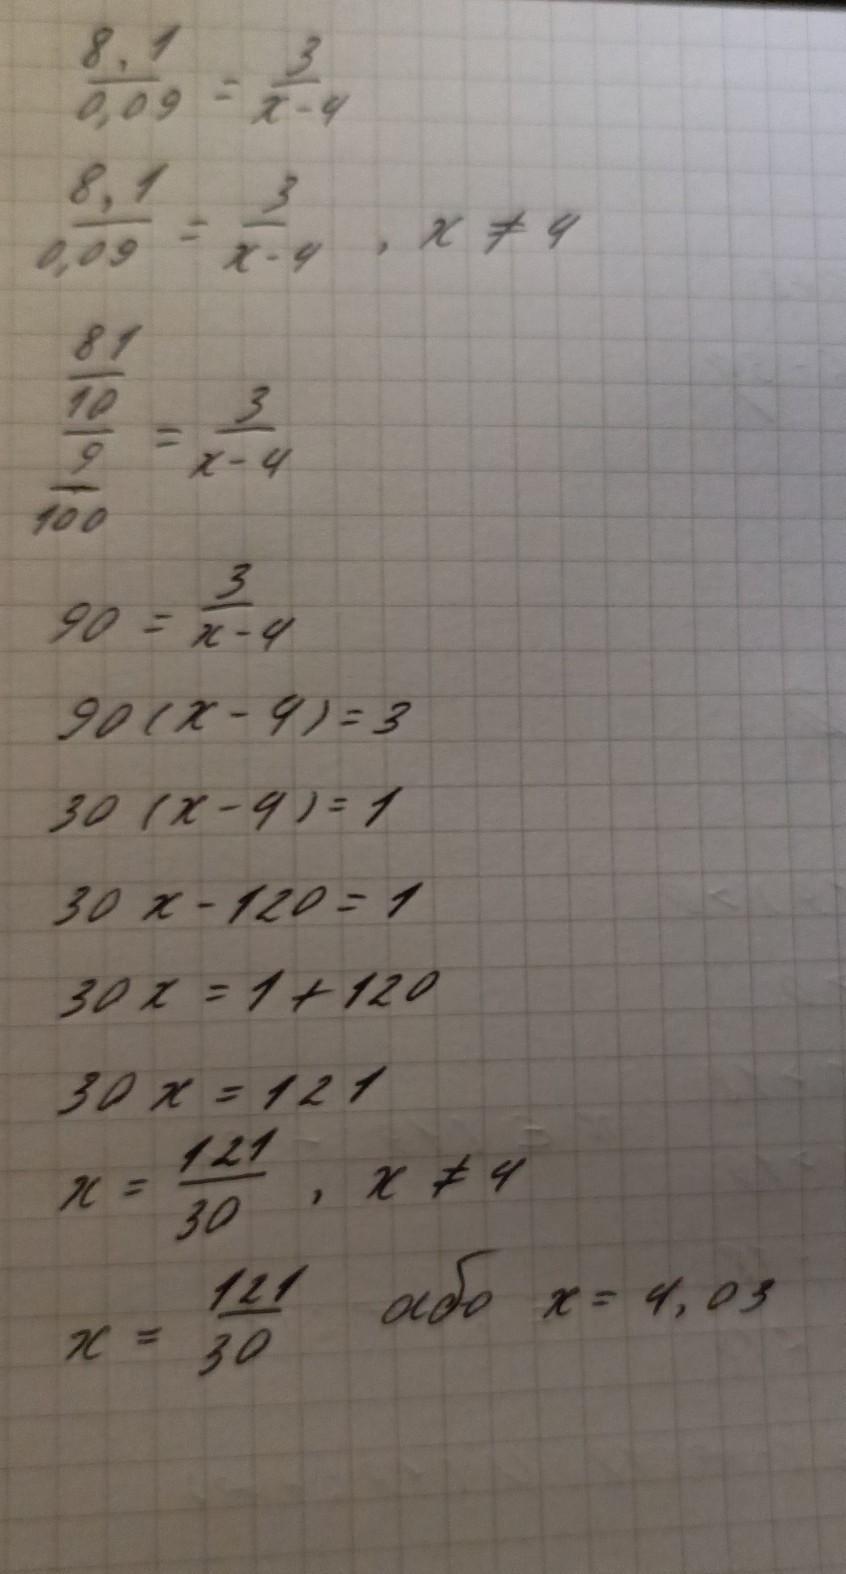 8,1/0,09 = 3/(x-4)
8,1/0,09 = 3/(x-4) , x ≠ 4
(81/10)/(9/100) = 3/(x-4)
90 = 3/(x-4)
90(x-4)=3
30(x-4)=1
30x-120=1
30x=1+120
30x=121
x=121/30 , x ≠ 4
x = 121/30 або x=4,03